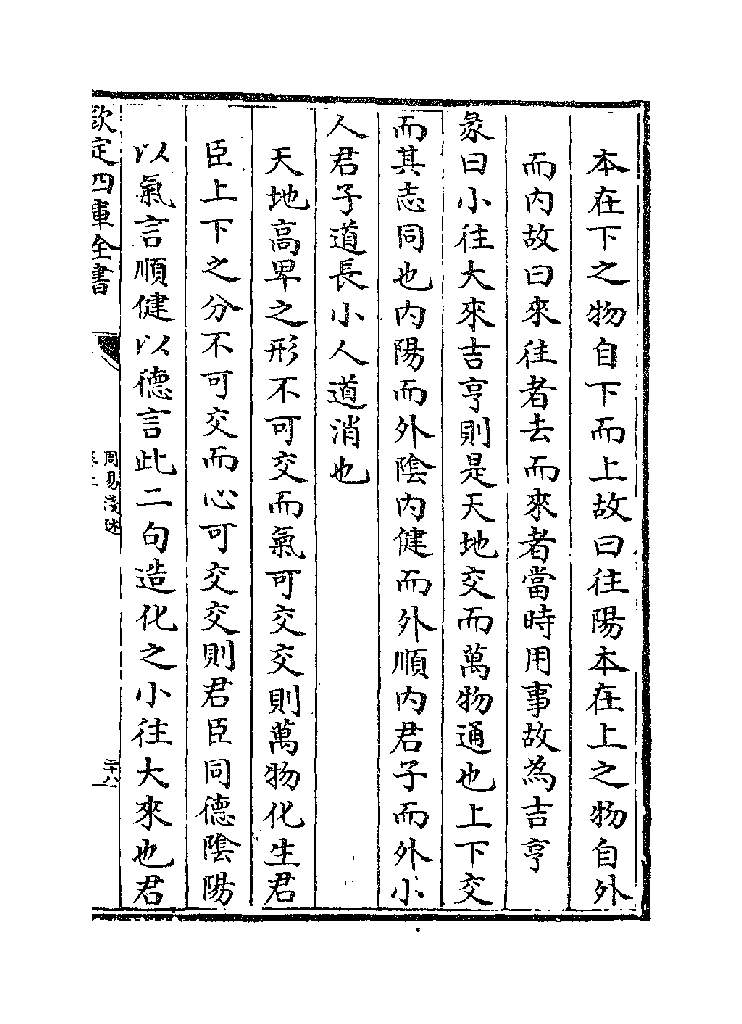 本在下之物自下而上故曰往陽本在上之物自外
而内故曰來往者去而來者當時用事故為吉亨
彖曰小往大來吉亨則是天地交而萬物通也上下交
而其志同也内陽而外隂内健而外順内君子而外小
人君子道長小人道消也
天地高卑之形不可交而氣可交交則萬物化生君
臣上下之分不可交而心可交交則君臣同德隂陽
以氣言順健以德言此二句造化之小往大來也君
欽定四庫全書
周易淺述
二十八